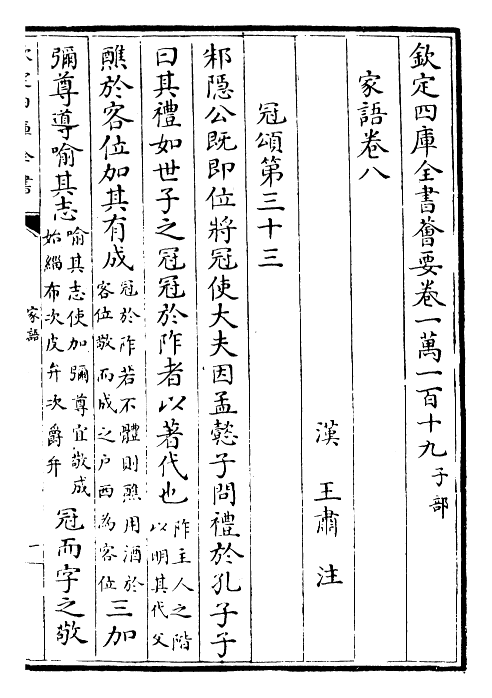 欽定四庫全書薈要卷一萬一百十九子部
家語卷八
漢王肅注
冠頌第三十三
邾隱公既即位將冠使大夫因孟懿子問禮於孔子子
曰其禮如世子之冠冠於阼者以著代也阼主人之階以明其代父
醮於客位加其有成冠於阼若不醴則醮用酒於客位敬而成之户西為客位三加
彌尊導喻其志喻其志使加彌尊宜敬成始緇布次皮弁次爵弁冠而字之敬
欽定四庫全書
家語
一